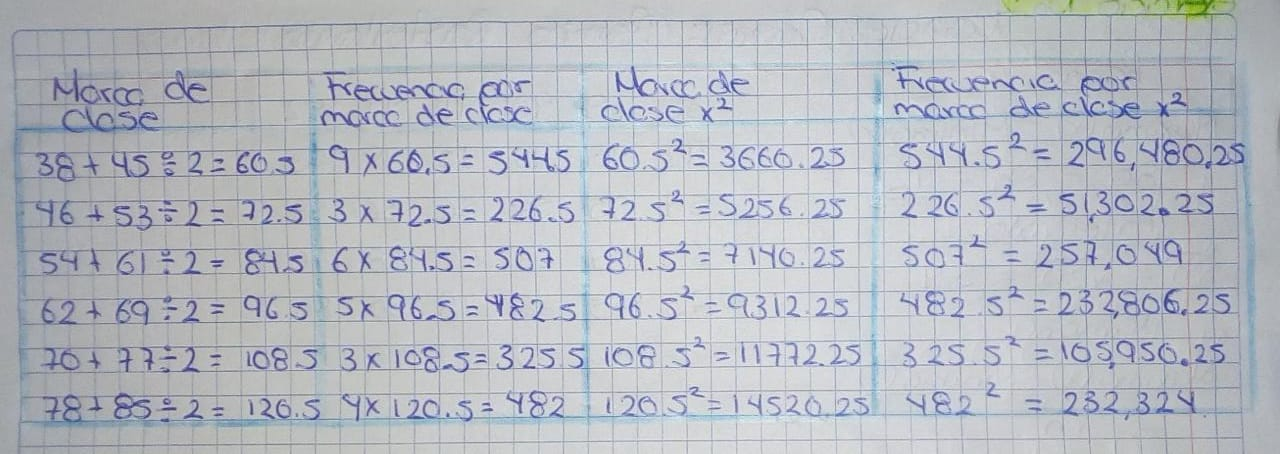 Marca de Frecuencia por Marca de Frecuencia por
clase marca de clase clase x² marca de clase x²
38 + 45 ÷ 2 = 60.5 9 x 60.5 = 544.5 60.5² = 3660.25 544.5² = 296,480.25
46 + 53 ÷ 2 = 72.5 3 x 72.5 = 226.5 72.5² = 5256.25 226.5² = 51,302.25
54 + 61 ÷ 2 = 84.5 6 x 84.5 = 507 84.5² = 7140.25 507² = 257,049
62 + 69 ÷ 2 = 96.5 5 x 96.5 = 482.5 96.5² = 9312.25 482.5² = 232,806.25
70 + 77 ÷ 2 = 108.5 3 x 108.5 = 325.5 108.5² = 11772.25 325.5² = 105,950.25
78 + 85 ÷ 2 = 120.5 4 x 120.5 = 482 120.5² = 14520.25 482² = 232,324